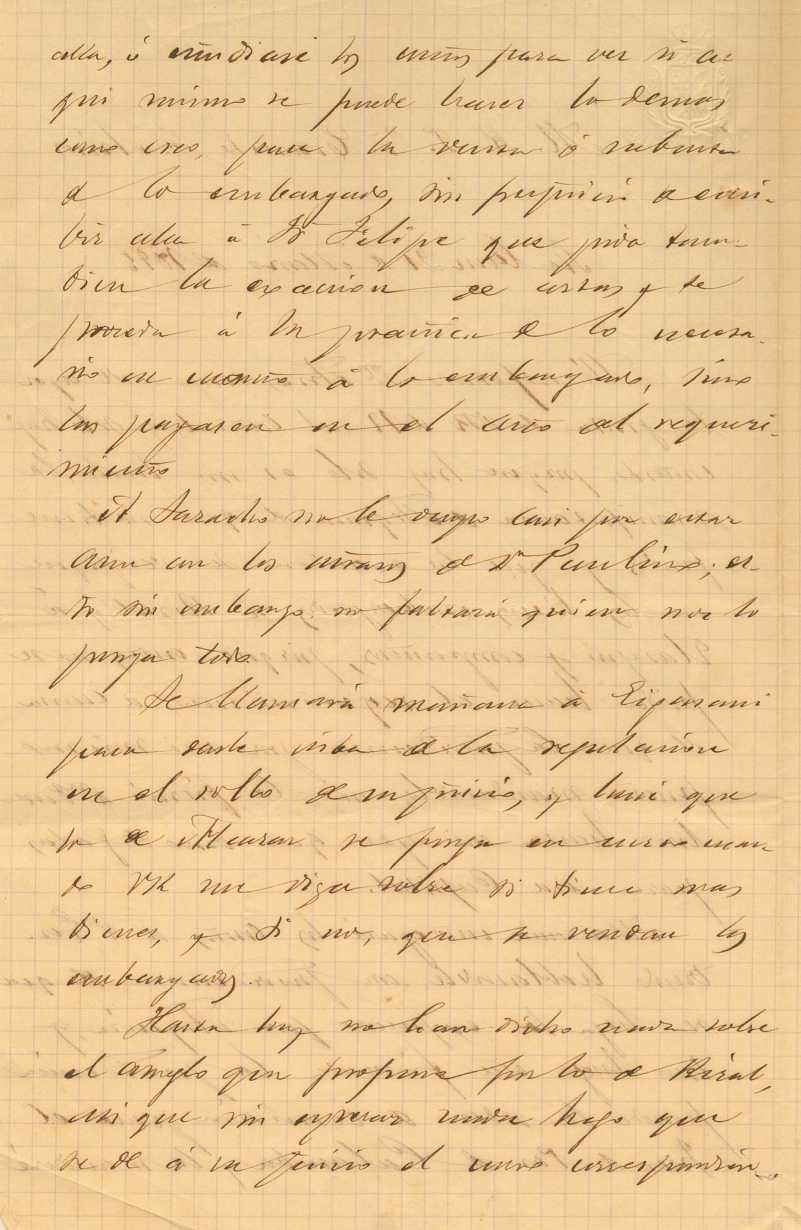 alla, ó estudiaré los autos para ver si a-
quí mismo se puede hacer lo demas
como creo, para la venta ó subasta
de lo embargado, sin perjuicio de escri-
bir alla á Dn Felipe que pida tam-
bien la exaccion de costas y se
proceda á la practica de lo necesa-
rio en cuanto á lo embargado, sino
las pagasen en el acto del requeri-
miento
A Saracho no le ocupo casi por estar
aun con los autos de Dn Paulino; es-
to sin embargo no faltará quien nos lo
ponga todo.
Se llamará mañana á
para darle vista de la repulacion
en el rollo de su juicio, y haré que
lo de se ponga en curso cuan-
do VK me diga sobre si tiene mas
bienes, y si no, que se vendan los
embargados.
Hasta hoy no han dicho nada sobre
el arreglo que propuse por lo de Rizal,
así que sin esperar nada hago que
se dé á su juicio el curso correspondien-